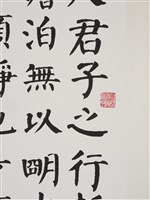 君子之行
泊無以眀
須靜也